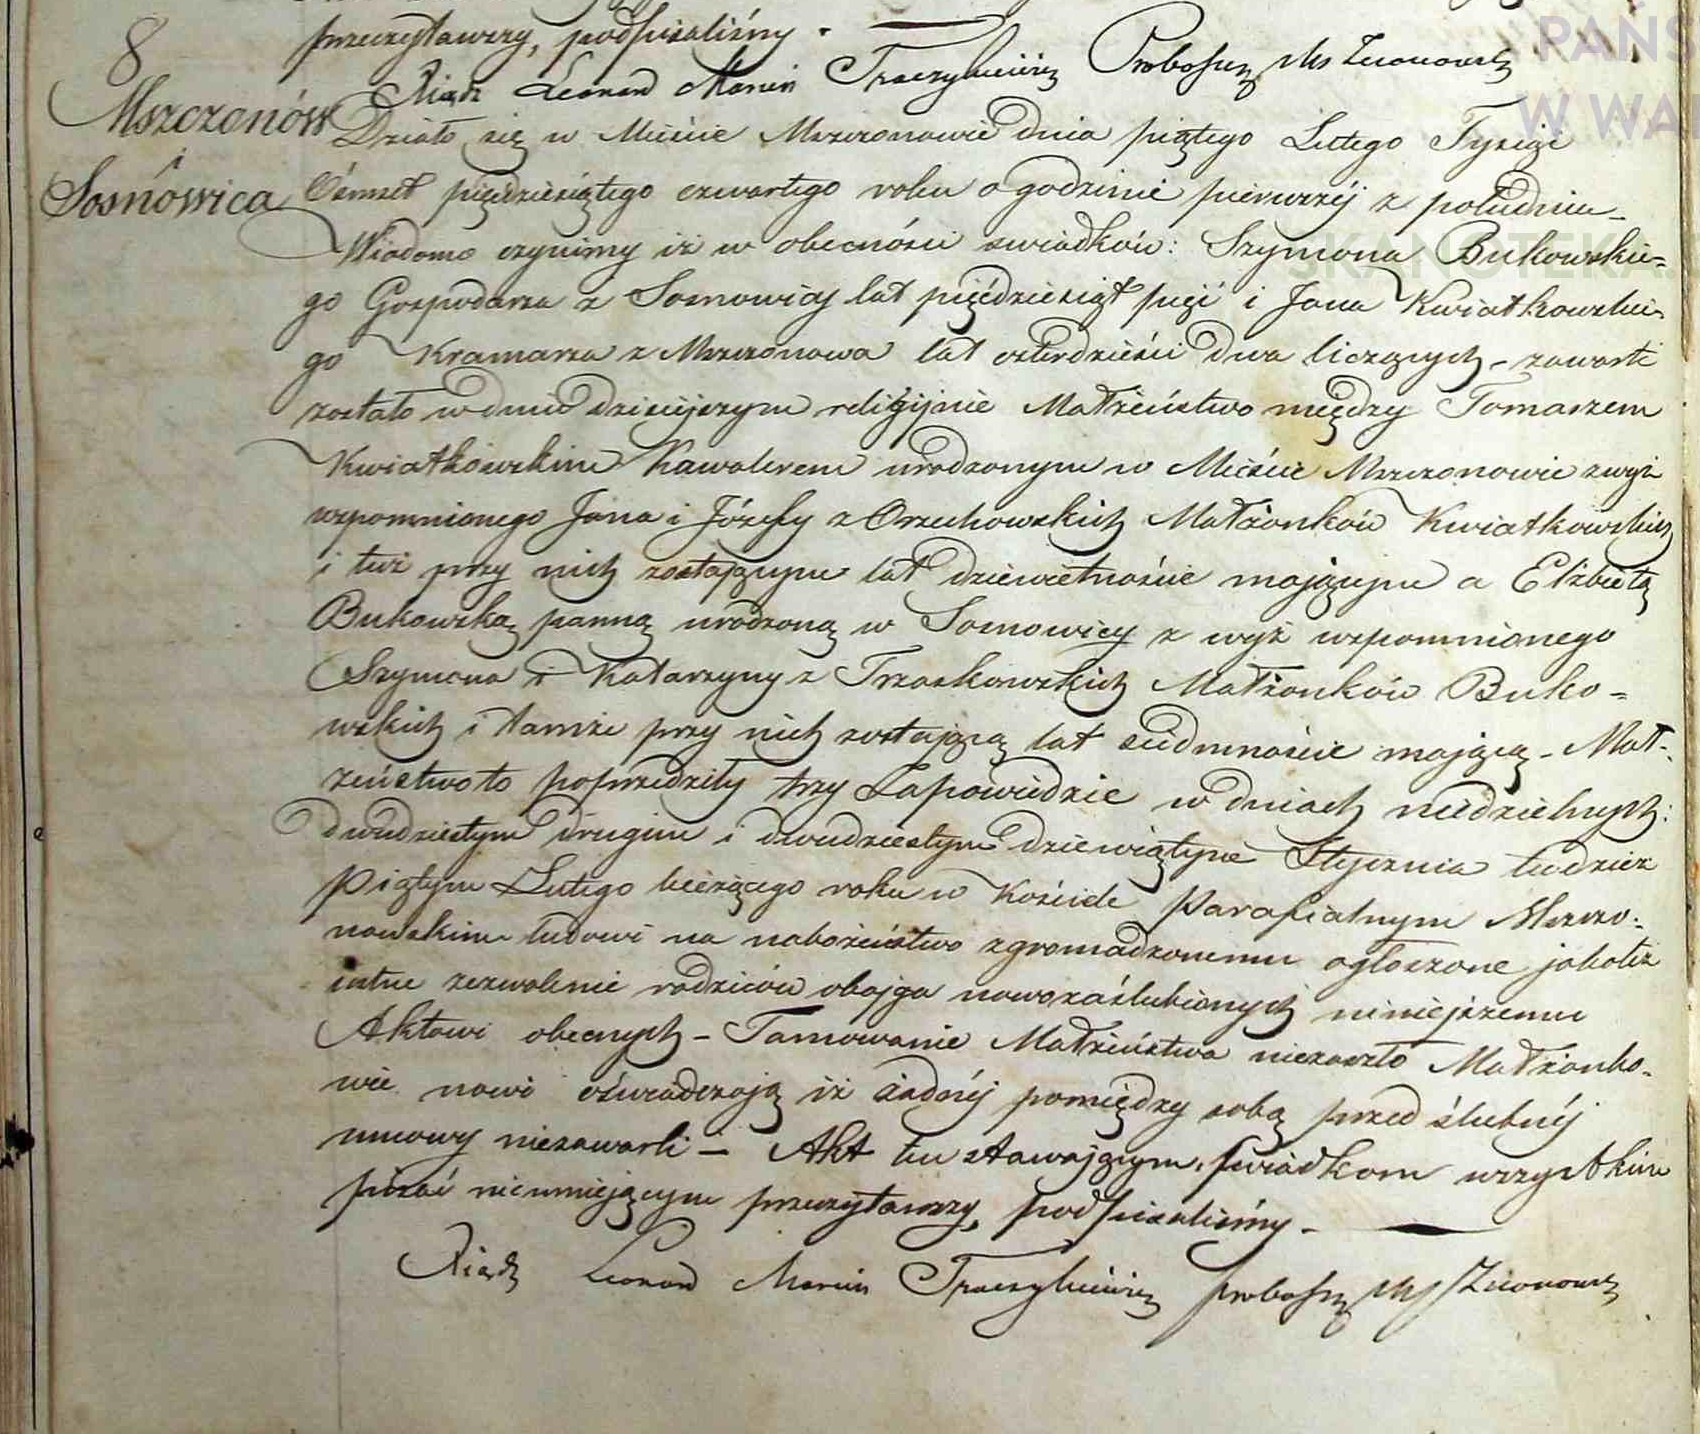 przeczytawszy, podpisaliśmy.
Xiądz Leonard Marcin Traczykiewicz Proboszcz Mszczonowsk
8
Mszczonów
i
Sosnowica
Działo się w Mieście Mszczonowie dnia piątego Lutego Tysiąc
Ośmset pięćdziesiątego czwartego roku o godzinie pierwszéj z południa
Wiadomo czynimy iż w obecności swiadków: Szymona Bukowskie=
go Gospodarza z Sosnowicy lat pięćdziesiąt pięć i Jana Kwiatkowskie=
go Kramarza z Mszczonowa lat czterdzieści dwa liczących – zawarte
zostało w dniu dzisiejszym religijnie Małżeństwo między Tomaszem
Kwiatkowskim Kawalerem urodzonym w Mieście Mszczonowie zwyż
wspomnionego Jana i Józefy z Orzechowskich Małżonków Kwiatkowskich
i tuż przy nich zostającym lat dziewietnaście mającym a Elżbietą
Bukowską panną urodzoną w Sosnowicy z wyż wspomnionego
Szymona i Katarzyny z Trzaskowskich Małżonków Buko=
wskich i tamże przy nich zostającą lat siedmnaście mającą – Mał=
żeństwo to poprzedziły trzy Zapowiedzie w dniach niedzielnych:
dwudziestym drugim i dwudziestym dziewiątym Stycznia tudzież
Piątym Lutego bieżącego roku w Kościele Parafialnym Mszczo=
nowskim ludowi na nabożeństwo zgromadzonemu ogłoszone jakoteż
ustne zezwolenie rodziców obojga nowozaślubionych niniejszemu
Aktowi obecnych – Tamowanie Małżeństwa niezaszło Małżonko=
wie nowi oświadczają iż żadnéj pomiędzy sobą przed ślubnéj
umowy niezawarli – Akt ten stawającym, świadkom wszystkim
pisać nieumiejącym przeczytawszy, podpisaliśmy –
Xiądz Leonard Marcin Traczykiewicz proboszcz Mszczonowsk
PAŃS
W WA
SKANOTEKA.